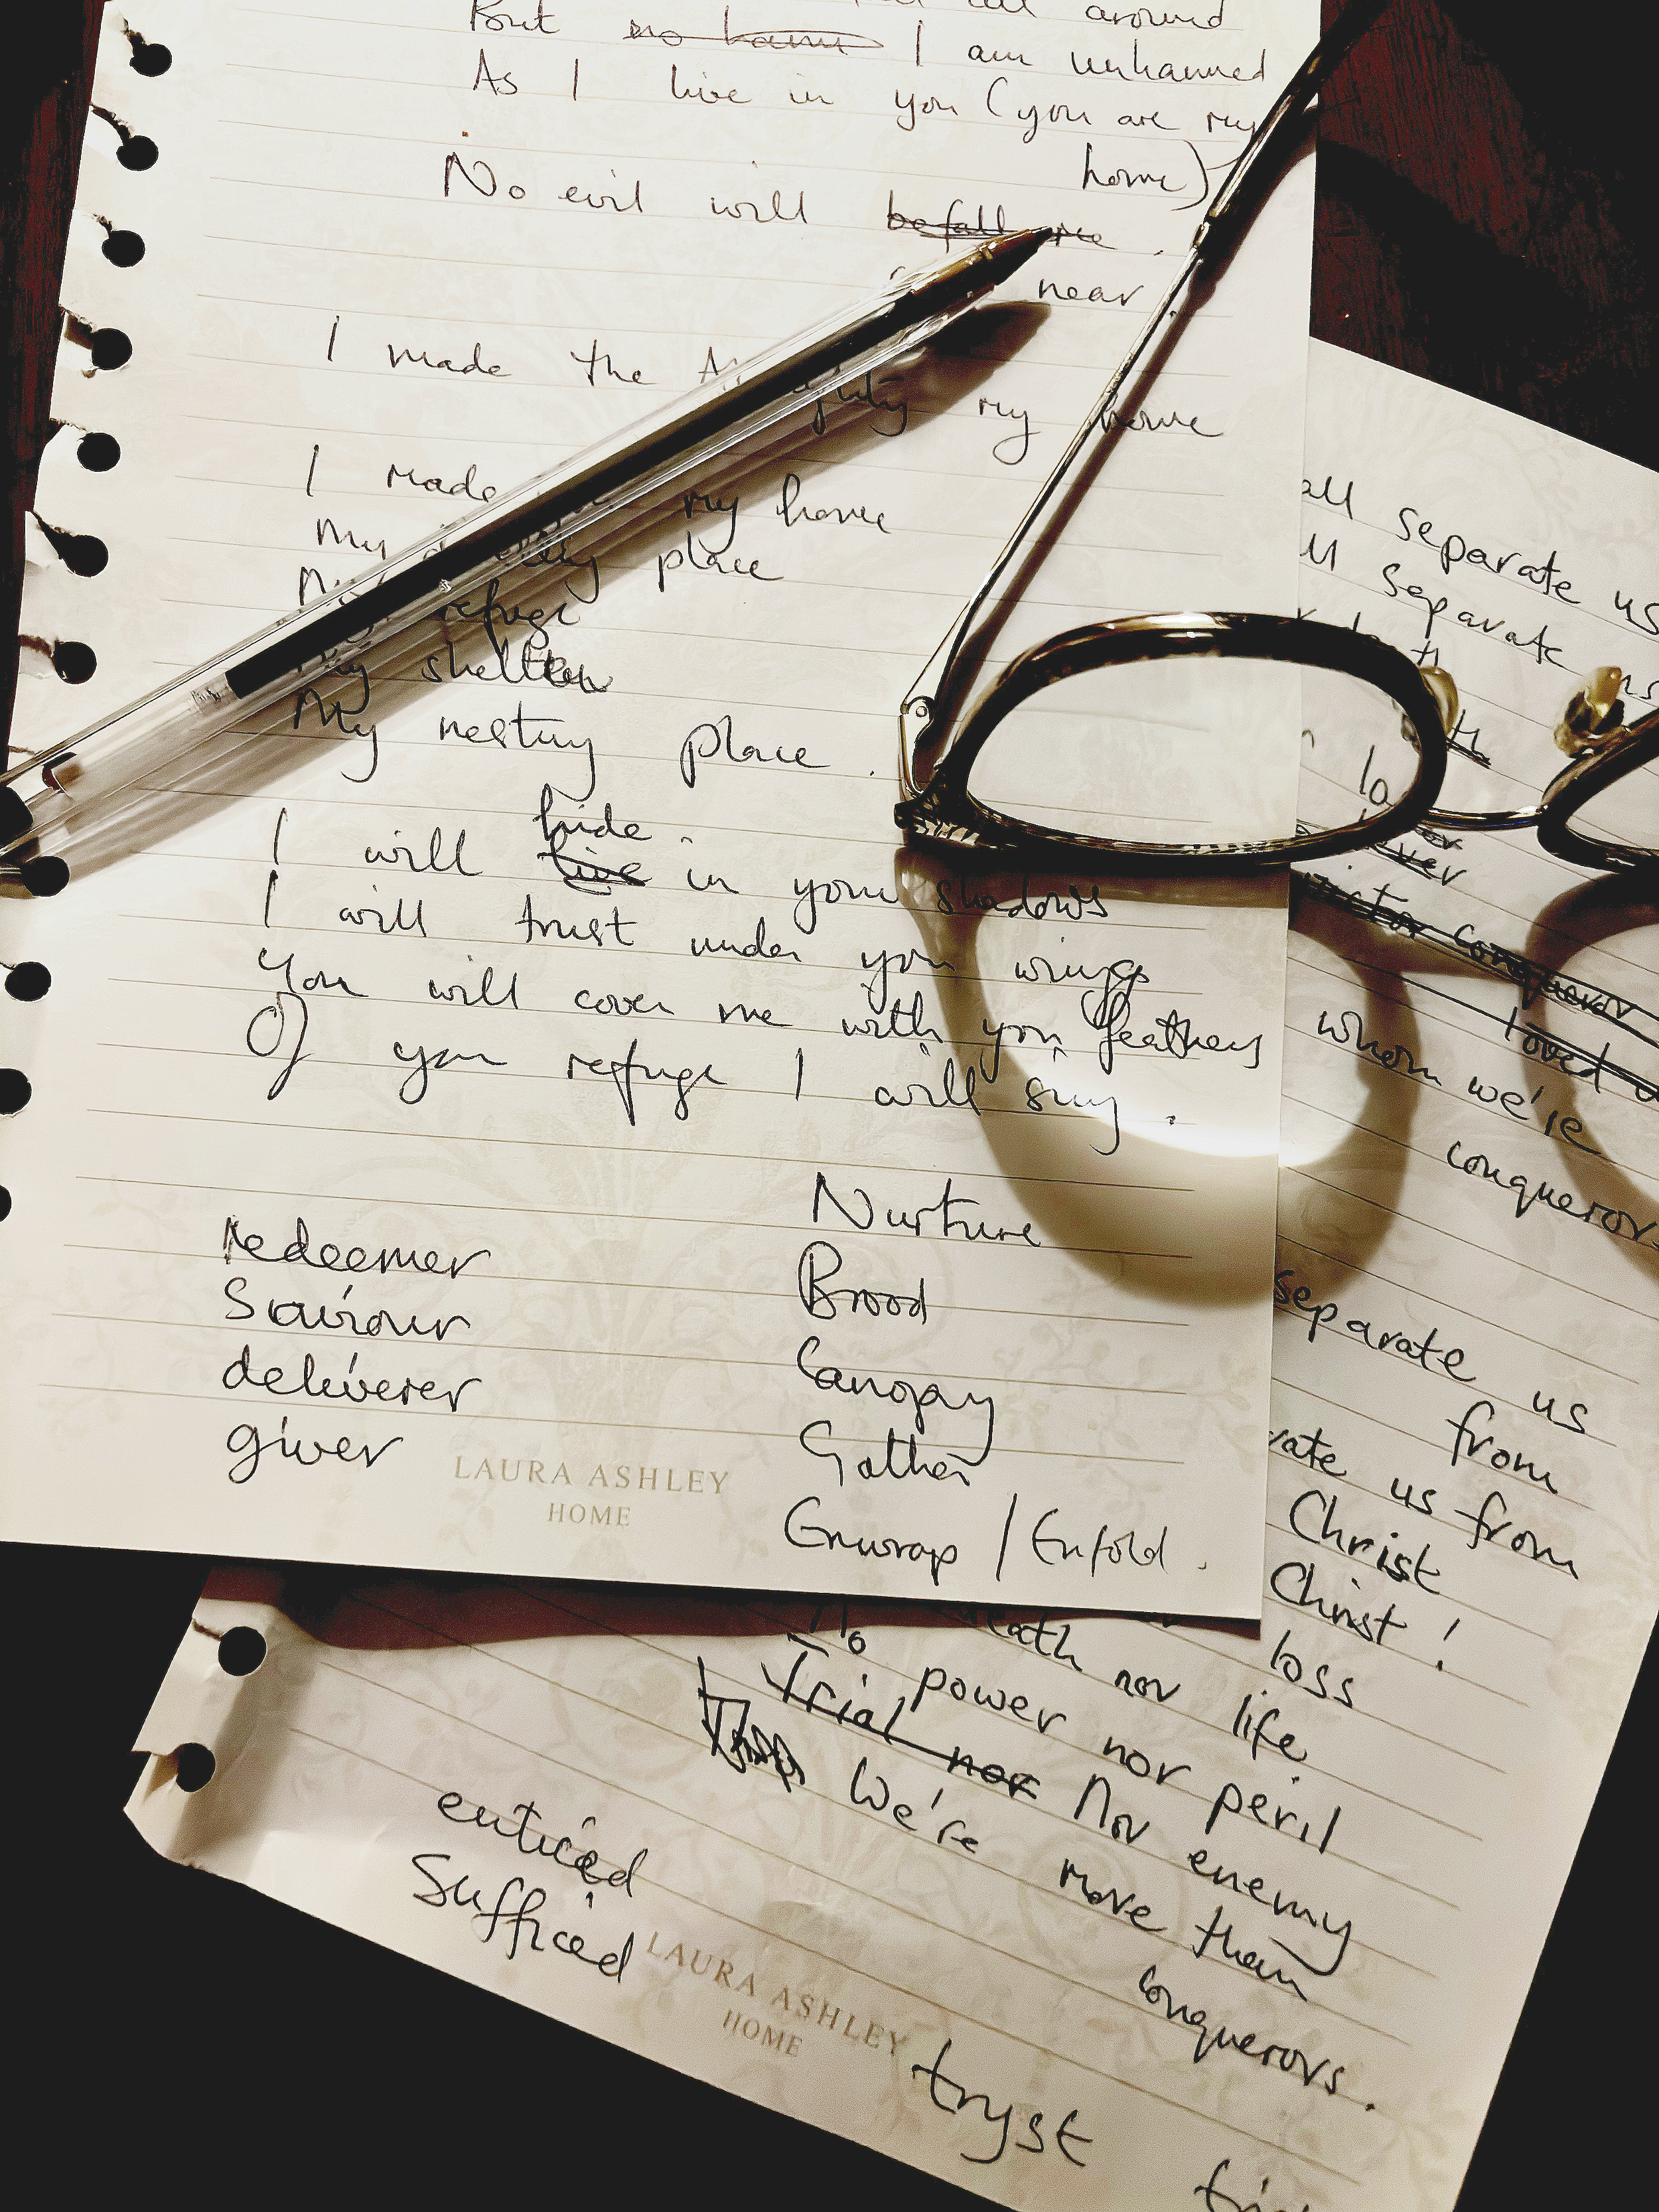 all around
But no harm I am unharmed
As I live in you (you are my
home)
No evil will befall me.
near
I made the Almighty my home
I made my home
My dwelling place
My refuge
My shelter
My nesting place.
hide
I will live in your shadows
I will trust under your wings
You will cover me with your feathers
Of your refuge I will sing.
Nurture
redeemer
Brood
Saviour
Canopy
deliverer
Gather
giver
Enwrap / Enfold.
LAURA ASHLEY
HOME
all separate us
separate us
conqueror
loved
whom we're
conquerors
separate us
from
us from
Christ
Christ!
loss
death nor life
No power nor peril
Trial nor Nor enemy
We're more than
conquerors.
enticed
Sufficed
LAURA ASHLEY
HOME
tryst